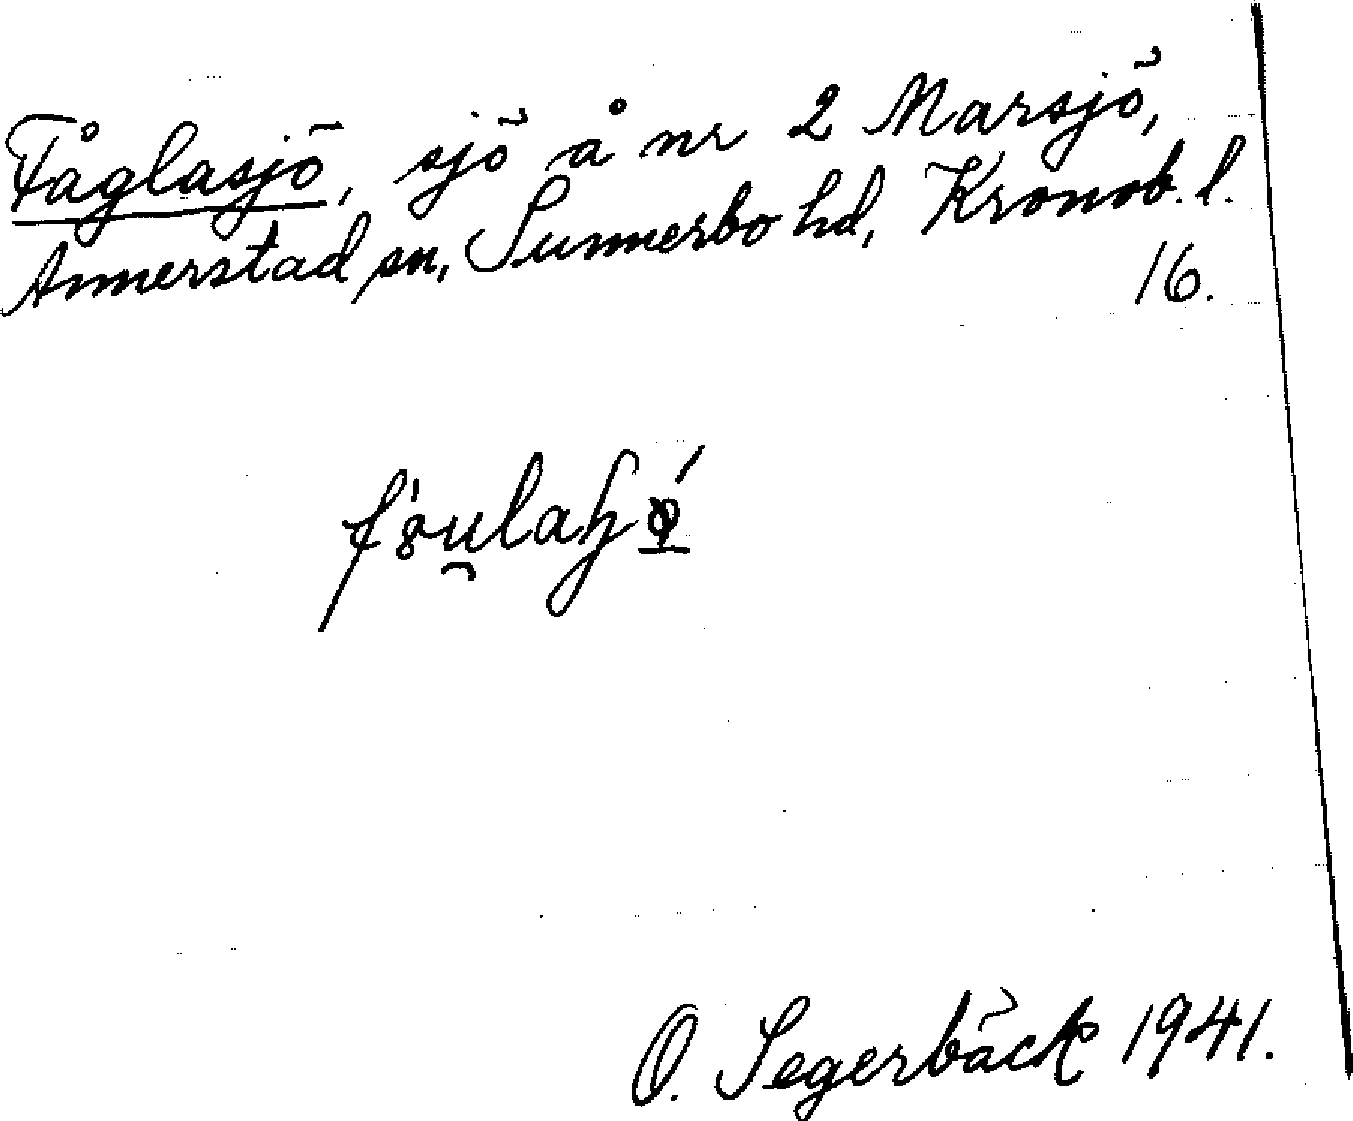 Fåglasjö, sjö å nr 2 Marsjö,
Annerstad sn, Sunnerbo hd, Kronob. l.
16.
O. Segerbäck 1941.